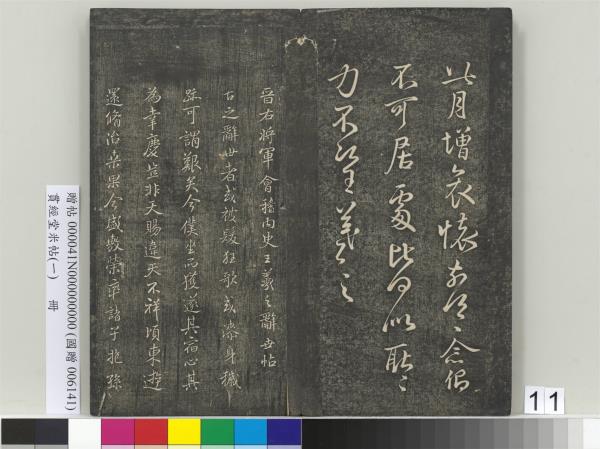 此月增哀懷念傷
不可居處耿〻
力不羲之
晉右將軍會稽內史王羲之辭世帖
古之辭世者或被髮狂歌或漆身穢
跡可謂艱矣今僕坐而獲遂其宿心其
為幸慶豈非天賜違天不祥頃東遊
還脩治桑果今盛敷榮率諸子抱孫
贈帖 000041N000000000 (國贈 006141)
貫經堂米帖(一) 冊
11